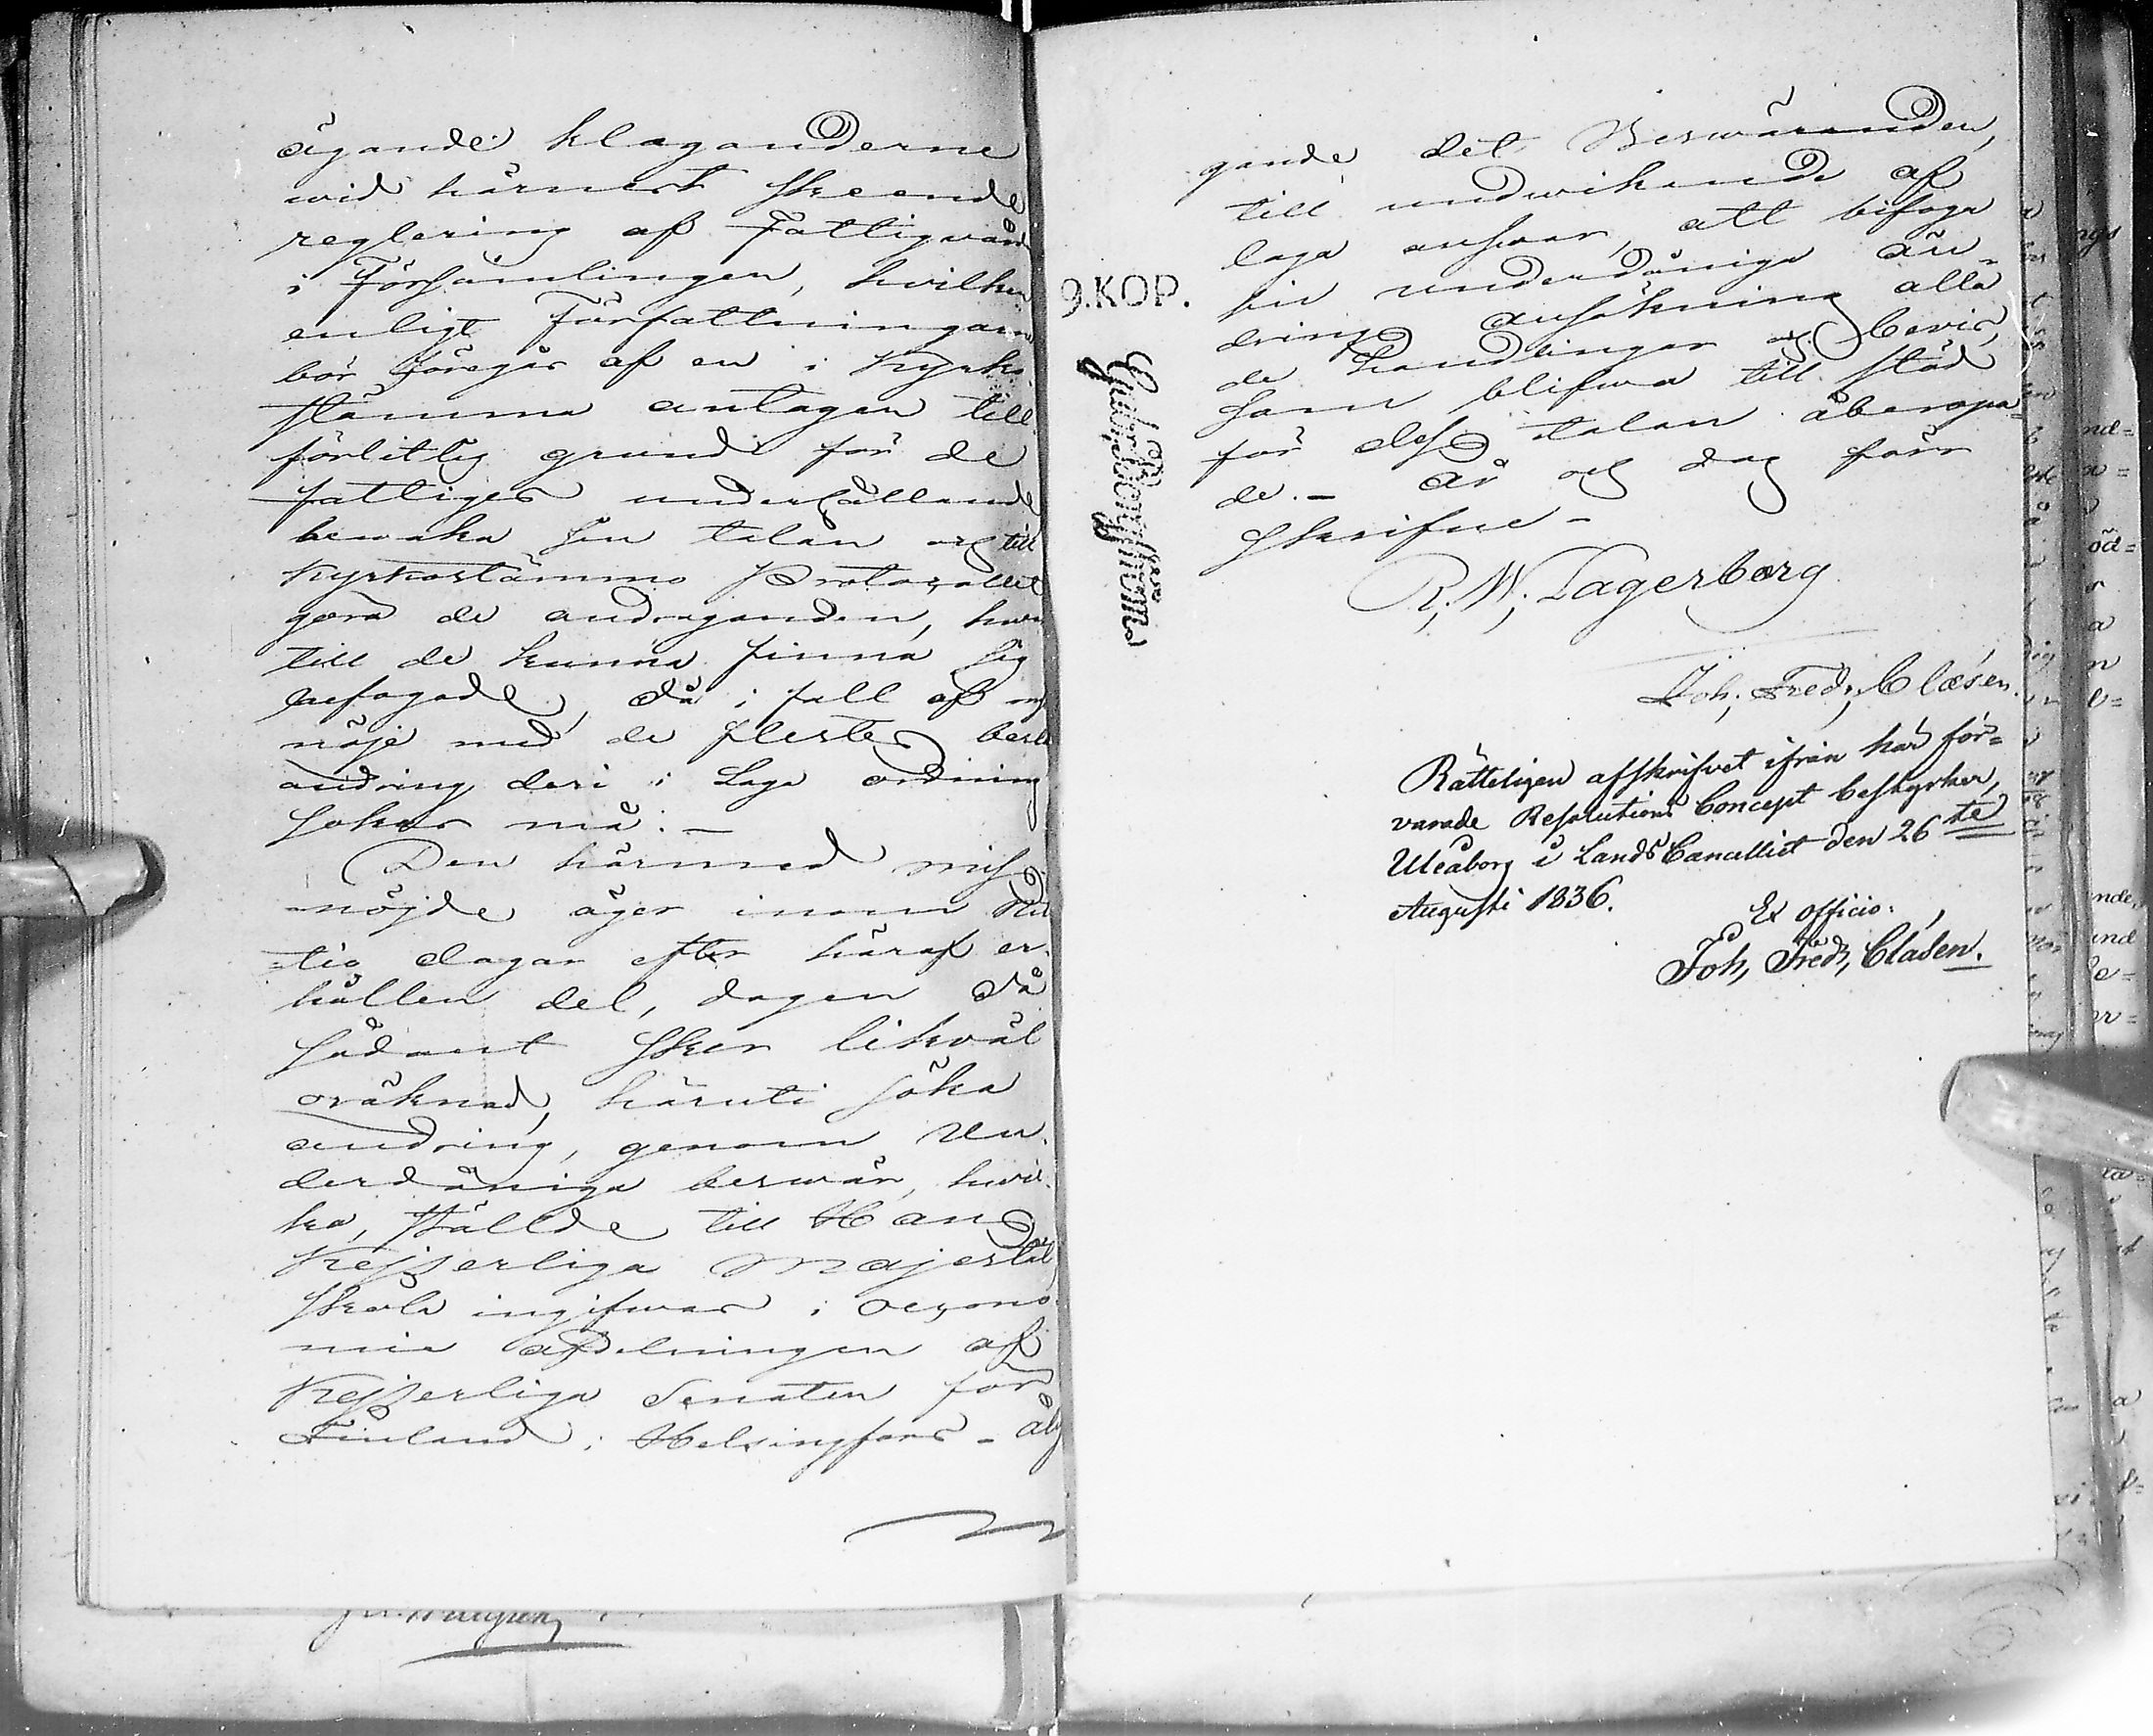 ägande klaganderne
wid härnest skeende
reglering af Fattigvård
i Församlingen, hvilken
enligt Författningarn
bör föregås af en i Kyrko
stämma antagen till
förlitlig grund för de
fattiges underhållande
bewaka sin talan och till
Kyrkostämmo Protocollet
göra de andraganden, hwar
till de kunna finna sig
befogade, då i fall af
nöje med de flestes beslut
ändring deri i Laga ordning
sökas må. —
Den härmed miss
nöjde äger inom
tio dagar efter häraf er-
hållen del, dagen då
sådant sker likväl
oräknad, häruti söka
ändring, genom Un-
derdåniga beswär, hwil-
ka, ställde till Hans
Kejserliga Majestät
skola ingifwas i Oecono-
mie afdelningen af
Kejserliga Senaten för
Finland i Helsingfors — ålig
gande det Beswäranden,
till undwikande af
laga answar, att bifoga
sin underdåniga än-
drings ansökning alla
de Handlingar och bevis,
som blifwa till stöd
för dess talan åberopa-
de. — År och dag förr
skrifne —
9.KOP.
R. W. Lagerborg
Joh. Fred. Clasén.
Rätteligen afskrifvet ifrån här för-
varade Resolutions Concept bestyrker,
Uleåborg i Lands Cancelliet den 26te
Augusti 1836.
Ex officio:
Joh. Fred. Clasén.